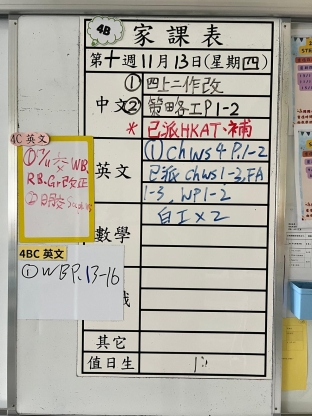 4B
家課表
第十週11月13日(星期四)
中文
①四上二作改
② 第 工P1-2
* 已派HKAT、補
英文
(1) Ch ws 4 P.1-2
已派 chws1-3, FA
1-3, WP1-2
數學
白工×2
其它
值日生
4C 英文
WB,
RB、Gr.改正
②
4BC 英文
①WBP.13-16